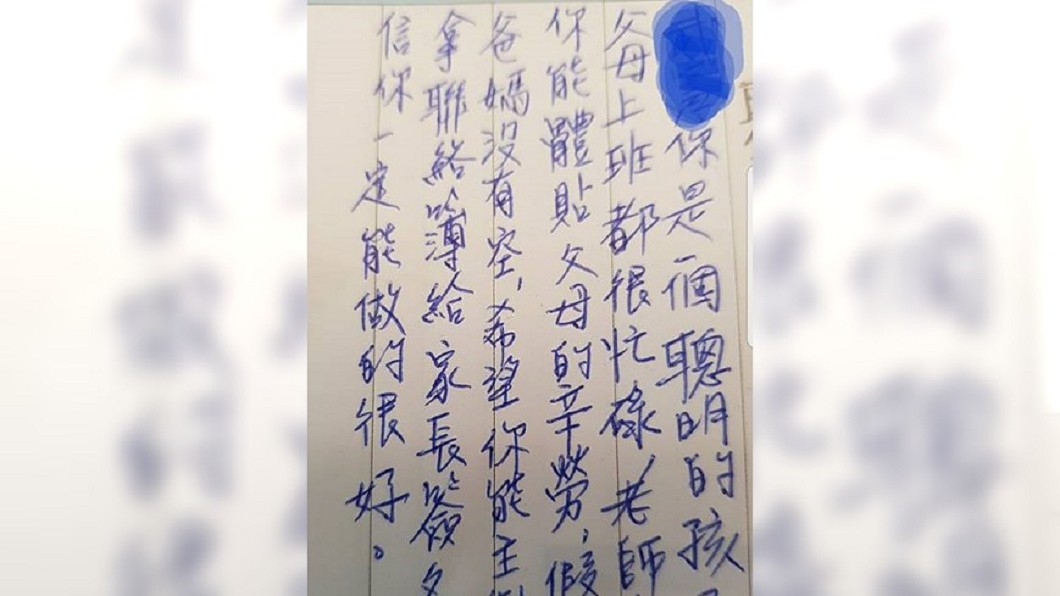 你是個聰明的孩
父母上班都很忙碌,老師
你能體貼父母的辛勞,假
爸媽沒有空,希望你能主
拿聯絡簿給家長簽
信你一定能做的很好。